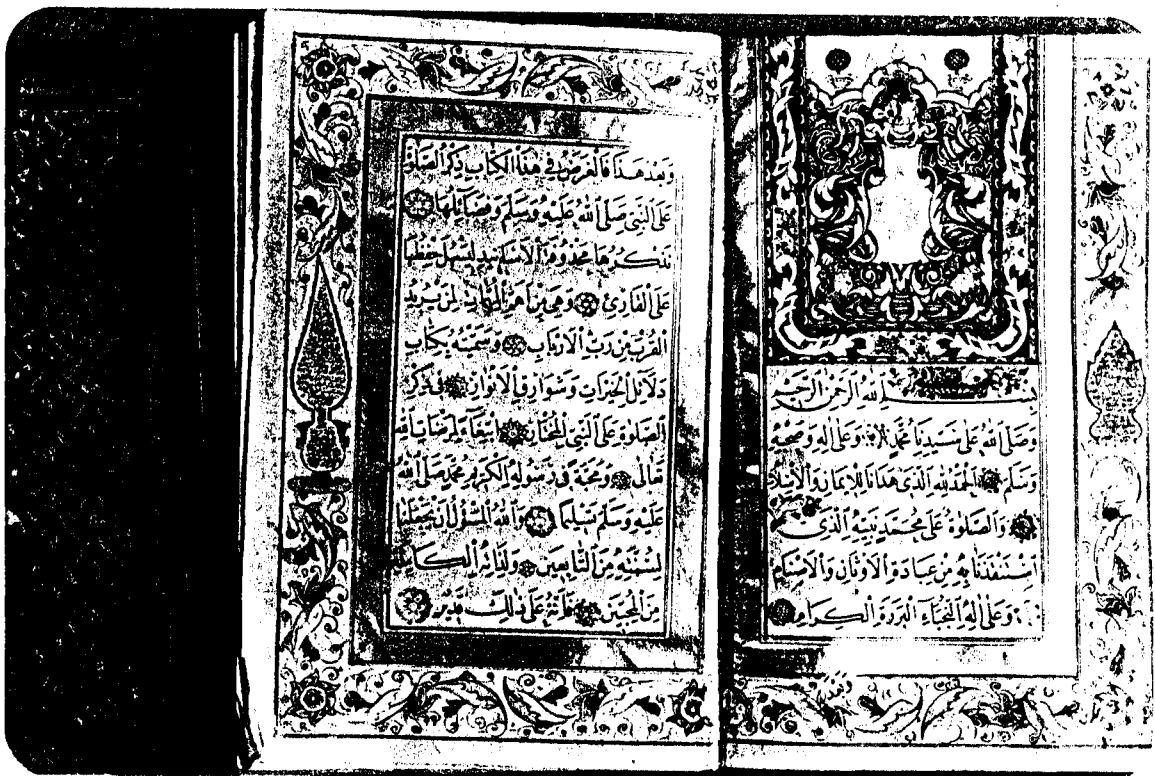 بِسْمِ اللهِ الرَّحْمٰنِ الرَّحِيمِ
وَصَلَّى اللهُ عَلَى سَيِّدِنَا مُحَمَّدٍ وَعَلَى آلِهِ وَصَحْبِهِ
وَسَلَّمَ اَلْحَمْدُ لِلهِ الَّذِي هَدَانَا لِلْاِيمَانِ وَالْاِسْلَامِ
وَالصَّلٰوةُ عَلَى مُحَمَّدٍ نَبِيِّهِ الَّذِي
اسْتَنْقَذَنَا بِهِ مِنْ عِبَادَةِ الْاَوْثَانِ وَالْاَصْنَامِ
وَعَلَى آلِهِ النُّجَبَاءِ الْبَرَرَةِ الْكِرَامِ
وَبَعْدُ
وَبَعْدَ هَذَا فَالْغَرَضُ فِي هَذَا الْكِتَابِ ذِكْرُ الصَّلٰوةِ
عَلَى النَّبِيِّ صَلَّى اللهُ عَلَيْهِ وَسَلَّمَ وَفَضَائِلُهَا
نَذْكُرُهَا مَحْذُوفَةَ الْاَسَانِيدِ لِيَسْهُلَ حِفْظُهَا
عَلَى الْقَارِئِ وَهِيَ مِنْ اَهَمِّ الْمُهِمَّاتِ لِمَنْ يُرِيدُ
الْقُرْبَ مِنْ رَبِّ الْاَرْبَابِ وَسَمَّيْتُهُ بِكِتَابِ
دَلَائِلِ الْخَيْرَاتِ وَشَوَارِقِ الْاَنْوَارِ فِي ذِكْرِ
الصَّلٰوةِ عَلَى النَّبِيِّ الْمُخْتَارِ ابْتِغَاءً لِمَرْضَاتِ اللهِ
تَعَالَى وَمَحَبَّةً فِي رَسُولِهِ الْكَرِيمِ مُحَمَّدٍ صَلَّى اللهُ
عَلَيْهِ وَسَلَّمَ تَسْلِيمًا وَاللهُ الْمَسْؤُلُ اَنْ يَجْعَلَنَا
لِسُنَّتِهِ مِنَ التَّابِعِينَ وَلِذَاتِهِ الْكَامِلَةِ
مِنَ الْمُحِبِّينَ فَاِنَّهُ عَلَى ذَلِكَ قَدِيرٌ